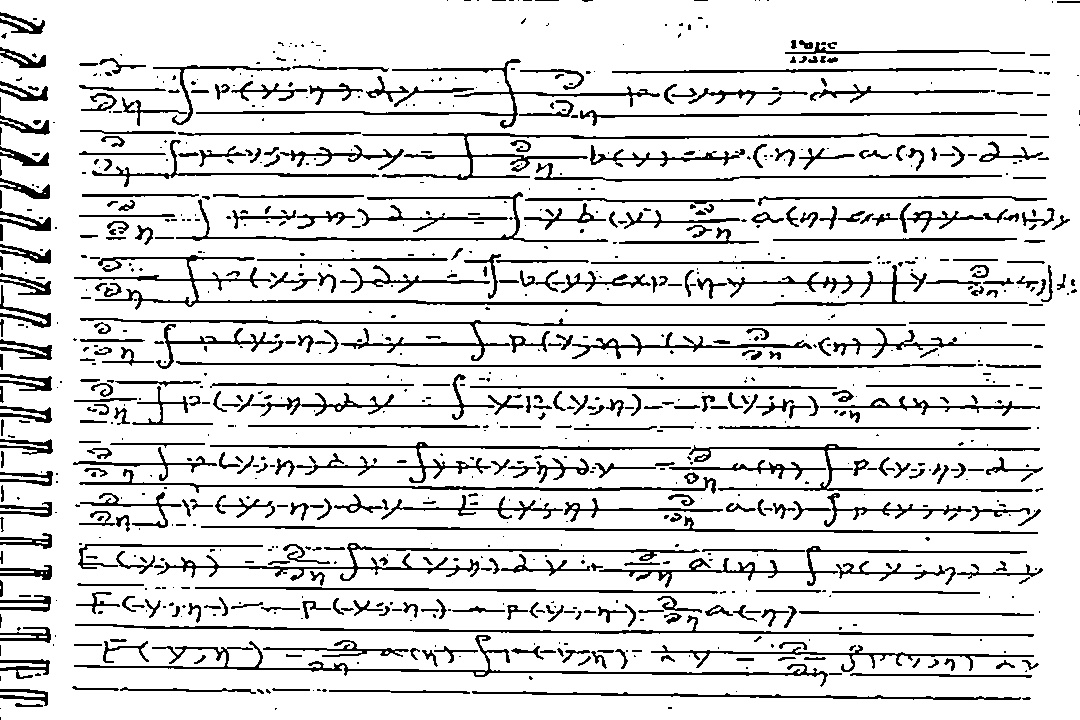 Page
Date
∂/∂η ∫ p(y;η) dy = ∫ ∂/∂η p(y;η) dy
∂/∂η ∫ p(y;η) dy = ∫ ∂/∂η b(y) exp(ηy - a(η)) dy
∂/∂η = ∫ p(y;η) dy = ∫ y b(y) ∂/∂η a(η) exp(ηy - a(η)) dy
∂/∂η ∫ p(y;η) dy = ∫ b(y) exp(ηy - a(η)) y ∂/∂η
∂/∂η ∫ p(y;η) dy = ∫ p(y;η) (y - ∂/∂η a(η)) dy
∂/∂η ∫ p(y;η) dy = ∫ y p(y;η) - p(y;η) ∂/∂η a(η) dy
∂/∂η ∫ p(y;η) dy = ∫ y p(y;η) dy - ∂/∂η a(η) ∫ p(y;η) dy
∂/∂η ∫ p(y;η) dy = E(y;η) - ∂/∂η a(η) ∫ p(y;η) dy
E(y;η) = ∂/∂η ∫ p(y;η) dy + ∂/∂η a(η) ∫ p(y;η) dy
E(y;η) = p(y;η) - p(y;η) ∂/∂η a(η)
E(y;η) = ∂/∂η a(η) ∫ p(y;η) dy = ∂/∂η ∫ p(y;η) dy